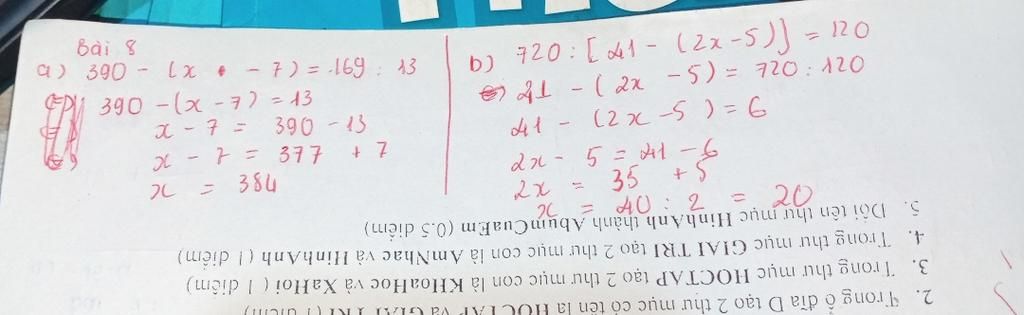 Bài 8
a) 390 - (x - 7) = 169 : 13
390 - (x - 7) = 13
x - 7 = 390 - 13
x - 7 = 377 + 7
x = 384
b) 720 : [41 - (2x - 5)] = 120
41 - (2x - 5) = 720 : 120
41 - (2x - 5) = 6
2x - 5 = 41 - 6
2x = 35 + 5
x = 40 : 2 = 20
2. Trong ổ đĩa D tạo 2 thư mục có tên là HOCTAP và GIAI TRI (1 điểm)
3. Trong thư mục HOCTAP tạo 2 thư mục con là KHoaHoc và XaHoi ( 1 điểm)
4. Trong thư mục GIAI TRI tạo 2 thư mục con là AmNhac và HinhAnh ( 1 điểm)
5. Đổi tên thư mục HinhAnh thành AbumCuaEm (0.5 điểm)